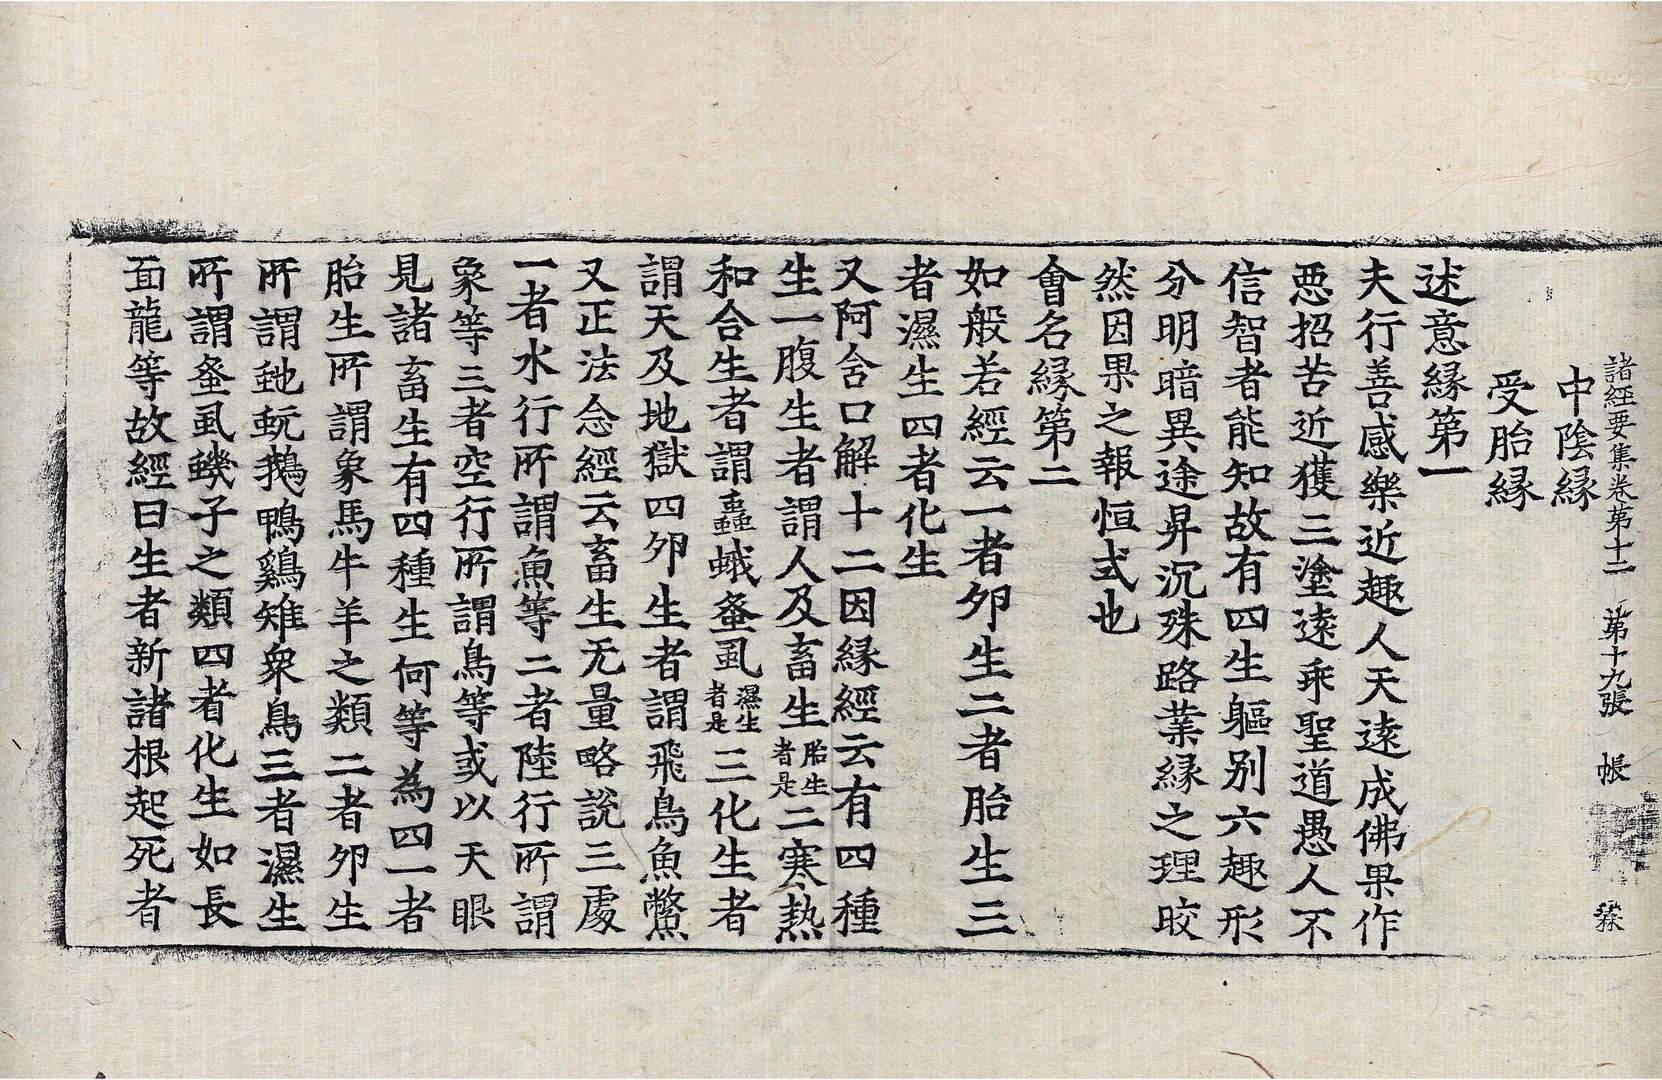 諸經要集卷第十二 第十九張 帳
中陰緣
受胎緣
述意緣第一
夫行善感樂近趣人天遠成佛果作
惡招苦近獲三塗遠乖聖道愚人不
信智者能知故有四生軀别六趣形
分明暗異途昇沉殊路業緣之理皎
然因果之報恒式也
會名緣第二
如般若經云一者卵生二者胎生三
者濕生四者化生
又阿含口解十二因緣經云有四種
生一腹生者謂人及畜生胎生者是二寒熱
和合生者謂蟲蛾蚤虱濕生者是三化生者
謂天及地獄四卵生者謂飛鳥魚鱉
又正法念經云畜生无量略說三處
一者水行所謂魚等二者陸行所謂
象等三者空行所謂鳥等或以天眼
見諸畜生有四種生何等為四一者
胎生所謂象馬牛羊之類二者卵生
所謂虵蚖鵝鴨鷄雉衆鳥三者濕生
所謂蚤虱蟣子之類四者化生如長
面龍等故經曰生者新諸根起死者